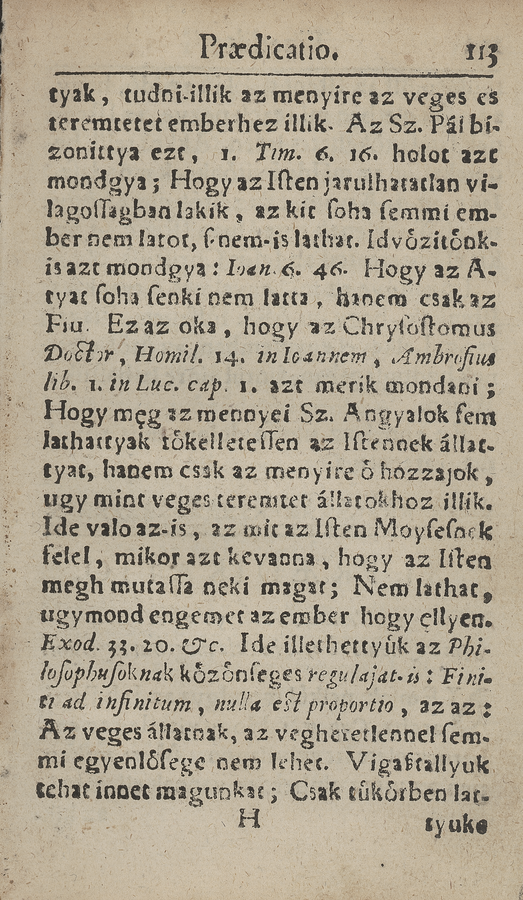 Prædicatio. 113
tyak, tudni-illik az menyire az veges es
teremtetet emberhez illik. Az Sz. Pál bi-
zonittya ezt, 1. Tim. 6. 16. holot azt
mondgya; Hogy az Iſten jarulhatatlan vi-
lagoſſagban lakik, az kit ſoha ſemmi em-
ber nem latot, ſ nem-is lathat. Idvözitönk-
is azt mondgya: Ioan. 6. 46. Hogy az A-
tyat ſoha ſenki nem latta, hanem csak az
Fiu. Ez az oka, hogy az Chryſoſtomus
Doctor, Homil. 14. in Ioannem, Ambroſius
lib. 1. in Luc. cap. 1. azt merik mondani;
Hogy meg az mennyei Sz. Angyalok ſem
lathattyak tökelleteſſen az Iſtennek állat-
tyat, hanem csak az menyire ö hozzajok,
ugy mint veges teremtet állatokhoz illik.
Ide valo az-is, az mit az Iſten Moyſeſnek
felel, mikor azt kevanna, hogy az Iſten
megh mutaſſa neki magat; Nem lathat,
ugymond engemet az ember hogy ellyen.
Exod. 33. 20. &c. Ide illethettyük az Phi-
loſophuſoknak közönſeges regulajat-is: Fini-
ti ad infinitum, nulla eſt proportio, az az:
Az veges állatnak, az veghetetlennel ſem-
mi egyenlöſege nem lehet. Vigaſtallyuk
tehat innet magunkat; Csak tükörben lat-
H tyuk